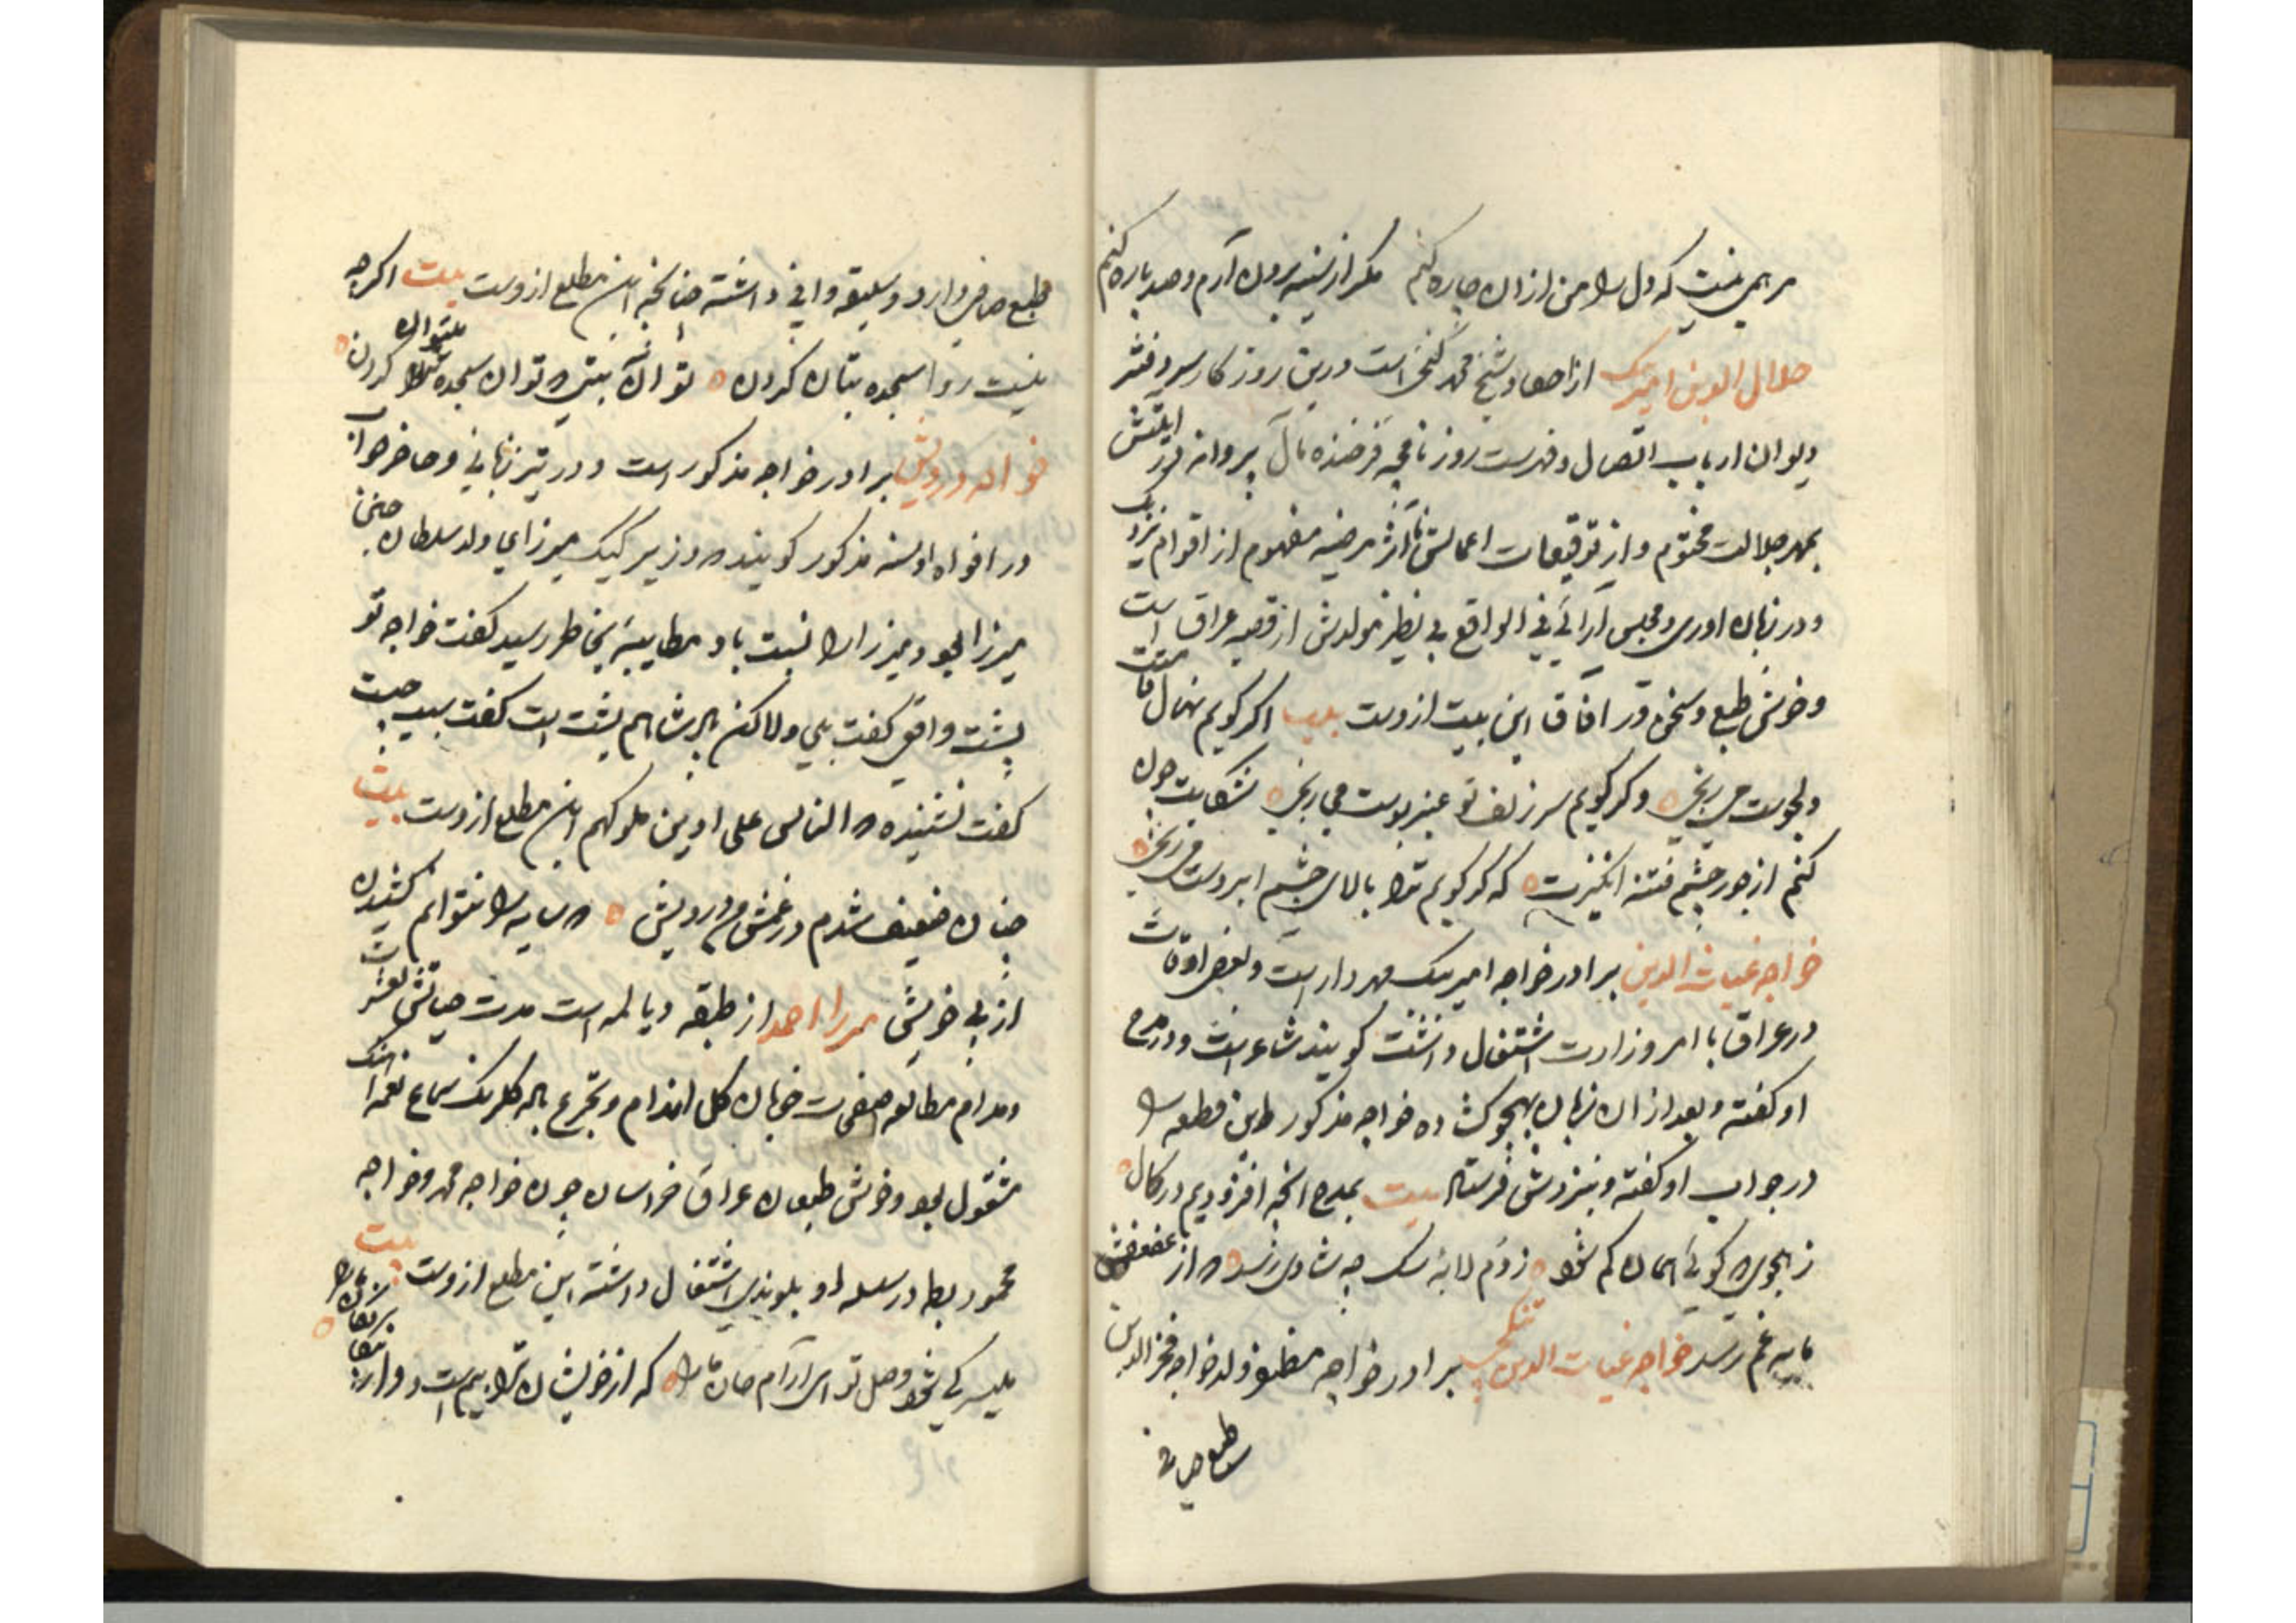 مرهمی نیست که دل را من ازان چاره کنم مکر از سینه برون آرم و صد پاره کنم
جلال الدین امیربک از احفاد شیخ محمد کججی است درین روزکار سر دفتر
دیوان ارباب اتصال و فهرست روزنامچه فرخنده مآل پروانه
بمهر جلالت مختوم و از توقیعات اعمالش آثار مرضیه مفهوم از اقوام
و در زبان اوری و مجلس آرائی فی الواقع بی نظیر مولدش از قصبه عراق است
و خوش طبع و سخن ور افاق این بیت ازوست بیت اکر کویم نهال قامتت
دلجوست می رنجی وکر کویم سر زلف تو عنبر بوست می رنجی شکایت چون
کنم از جور چشم فتنه انکیزت که کر کویم ترا بالای چشم ابروست می رنجی
خواجه غیاث الدین برادر خواجه امیر بیک مهردار است و بعضی اوقات
در عراق با امر وزارت اشتغال داشت کویند شاعریست و در مدح
او کفته و بعد از ان زبان بهجو کشاده خواجه مذکور این قطعه را
در جواب او کفته و بنزدش فرستاد بیت بمدح انچه افزودیم در کمال
ز هجوی که کوئی همان کم شود ز دم لابه سک چه شادی رسد که از عفعفش
مایه غم رسد خواجه غیاث الدین برادر خواجه مظفر ولد خواجه فخر الدین
طبع صافی
طبع صافی دارد و سلیقه وافی داشته چنانچه این مطلع ازوست بیت اکر چه
نیست روا سجده بتان کردن تو آن بتی که توان سجده کردن
برادر خواجه مذکور است و در تیز زبانی و حاضر جواب
در افواه و السنه مذکور کویند که وزیر کپک میرزای ولد سلطان حسین
میرزا بود میرزا را نسبت باو مطایبه بخاطر رسید کفت خواجه تو
پشت واقی کفت بلی ولاکن پدر شما هم پشت است کفت سبب چیست
کفت نشنیده که الناس علی ادین ملوکهم این مطلع ازوست بیت
چنان ضعیف شدم در غمش من درویش که سایه را نتوانم کشیدن
از پی خویش میرزا احمد از طبقه دیالمه است مدت حیاتش بعشرت
و مدام مطالعه صفحات خوبان کل اندام و تجرع پیاله کلرنک سماع نغمه آهنک
مشغول بود و خوش طبعان عراق خراسان چون خواجه محمد و خواجه
محمود بطه در سلسله او بلوندی اشتغال داشته این مطلع ازوست بیت
میسر کی شود وصل تو ای آرام جان ما را که از خویشان ترا بیم است و از